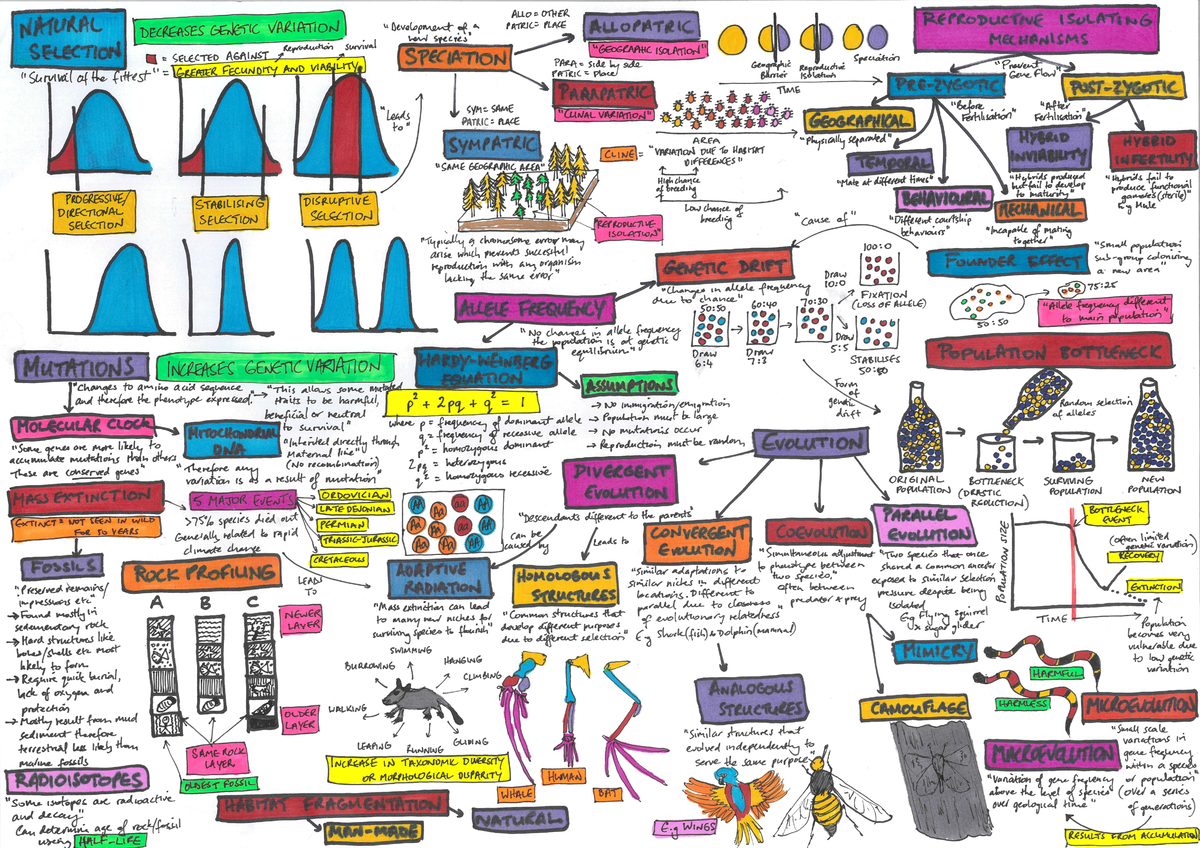 NATURAL
SELECTION
DECREASES GENETIC VARIATION
= SELECTED AGAINST
Reproduction
survival
"Survival of the fittest" = GREATER FECUNDITY AND VIABILITY
"Leads
to"
PROGRESSIVE/
DIRECTIONAL
SELECTION
STABILISING
SELECTION
DISRUPTIVE
SELECTION
"Development of a
new species"
SPECIATION
ALLO = OTHER
PATRIC = PLACE
ALLOPATRIC
"GEOGRAPHIC ISOLATION"
Geographic
Barrier
Reproductive
Isolation
Speciation
TIME
PARA = Side by side
PATRIC = Place
PARAPATRIC
"CLINAL VARIATION"
AREA
CLINE = "VARIATION DUE TO HABITAT
DIFFERENCES"
High chance
of breeding
Low chance of
breeding
SYM = SAME
PATRIC = PLACE
SYMPATRIC
"SAME GEOGRAPHIC AREA"
"REPRODUCTIVE
ISOLATION"
"Typically a chromosome error may
arise which prevents successful
reproduction with any organism
lacking the same error"
REPRODUCTIVE ISOLATING
MECHANISMS
"Prevent
Gene Flow"
PRE-ZYGOTIC
"Before
Fertilisation"
POST-ZYGOTIC
"After
Fertilisation"
GEOGRAPHICAL
"Physically separated"
TEMPORAL
"Mate at different times"
BEHAVIOURAL
"Different courtship
behaviours"
MECHANICAL
"Incapable of mating
together"
HYBRID
INVIABILITY
"Hybrids produced
but fail to develop
to maturity"
HYBRID
INFERTILITY
"Hybrids fail to
produce functional
gametes (sterile)
E.g Mule
"Cause of"
GENETIC DRIFT
"Changes in allele frequency
due to chance"
50:50
Draw
6:4
60:40
Draw
7:3
70:30
Draw
10:0
100:0
FIXATION
(LOSS OF ALLELE)
Draw
5:5
STABILISES
50:50
Form
of
genetic
drift
FOUNDER EFFECT
"Small population
sub-group colonising
a new area"
50:50
75:25
"Allele frequency different
to main population"
POPULATION BOTTLENECK
Random selection
of alleles
ORIGINAL
POPULATION
BOTTLENECK
(DRASTIC
REDUCTION)
SURVIVING
POPULATION
NEW
POPULATION
BOTTLENECK
EVENT
(often limited
genetic variation)
RECOVERY
EXTINCTION
POPULATION SIZE
TIME
Population
becomes very
vulnerable due
to low genetic
variation
ALLELE FREQUENCY
"No changes in allele frequency
the population is at genetic
equilibrium"
HARDY-WEINBERG
EQUATION
p² + 2pq + q² = 1
where p = frequency of dominant allele
q = frequency of recessive allele
p² = homozygous dominant
2pq = heterozygous
q² = homozygous recessive
ASSUMPTIONS
→ No immigration/emigration
→ Population must be large
→ No mutations occur
→ Reproduction must be random
AA AA aa AA
Aa Aa aa AA
Aa AA Aa Aa
MUTATIONS
INCREASES GENETIC VARIATION
"Changes to amino acid sequence
and therefore the phenotype expressed"
"This allows some mutated
traits to be harmful,
beneficial or neutral
to survival"
MOLECULAR CLOCK
"Some genes are more likely to
accumulate mutations than others
These are conserved genes"
MITOCHONDRIAL
DNA
"Inherited directly through
Maternal line"
(No recombination)
"Therefore any
variation is as a result of mutation"
MASS EXTINCTION
EXTINCT = NOT SEEN IN WILD
FOR 50 YEARS
5 MAJOR EVENTS
>75% species died out
Generally related to rapid
climate change
ORDOVICIAN
LATE DEVONIAN
PERMIAN
TRIASSIC-JURASSIC
CRETACEOUS
LEAD
TO
FOSSILS
"Preserved remains/
impressions etc"
→ Found mostly in
sedimentary rock
→ Hard structures like
bones/shells etc most
likely to form
→ Require quick burial,
lack of oxygen and
protection
→ Mostly result from mud
sediment therefore
terrestrial less likely than
marine fossils
ROCK PROFILING
A B C
NEWER
LAYER
OLDER
LAYER
SAME ROCK
LAYER
OLDEST FOSSIL
RADIOISOTOPES
"Some isotopes are radioactive
and decay"
Can determine age of rock/fossil
using HALF-LIFE
HABITAT FRAGMENTATION
MAN-MADE
NATURAL
EVOLUTION
DIVERGENT
EVOLUTION
"Descendants different to the parents"
can be
caused by
Leads to
ADAPTIVE
RADIATION
"Mass extinction can lead
to many new niches for
surviving species to flourish"
SWIMMING
BURROWING
HANGING
CLIMBING
WALKING
LEAPING
RUNNING
GLIDING
INCREASE IN TAXONOMIC DIVERSITY
OR MORPHOLOGICAL DISPARITY
HOMOLOGOUS
STRUCTURES
"Common structures that
develop different purposes
due to different selection"
WHALE
HUMAN
BAT
CONVERGENT
EVOLUTION
"Similar adaptations to
similar niches in different
locations. Different to
parallel due to closeness
of evolutionary relatedness
E.g Shark (fish) & Dolphin (mammal)
ANALOGOUS
STRUCTURES
"Similar structures that
evolved independently to
serve the same purpose"
E.g WINGS
COEVOLUTION
"Simultaneous adjustment
to phenotype between
two species"
often between
predator & prey
PARALLEL
EVOLUTION
"Two species that once
shared a common ancestor
exposed to similar selection
pressure despite being
isolated
E.g Flying squirrel
x sugar glider
MIMICRY
HARMFUL
HARMLESS
CAMOUFLAGE
MICROEVOLUTION
"Small scale
variations in
gene frequency
within a species
or population"
(over a series
of generations)
MACROEVOLUTION
"Variation of gene frequency
above the level of species
over geological time"
RESULTS FROM ACCUMULATION